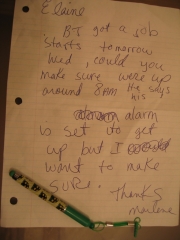 Elaine
BJ got a job
starts tomorrow
could you
make sure were up
around 8am He says
his
alarm
is set to get
up but I
want to make
SURE.
Thanks
Marlene